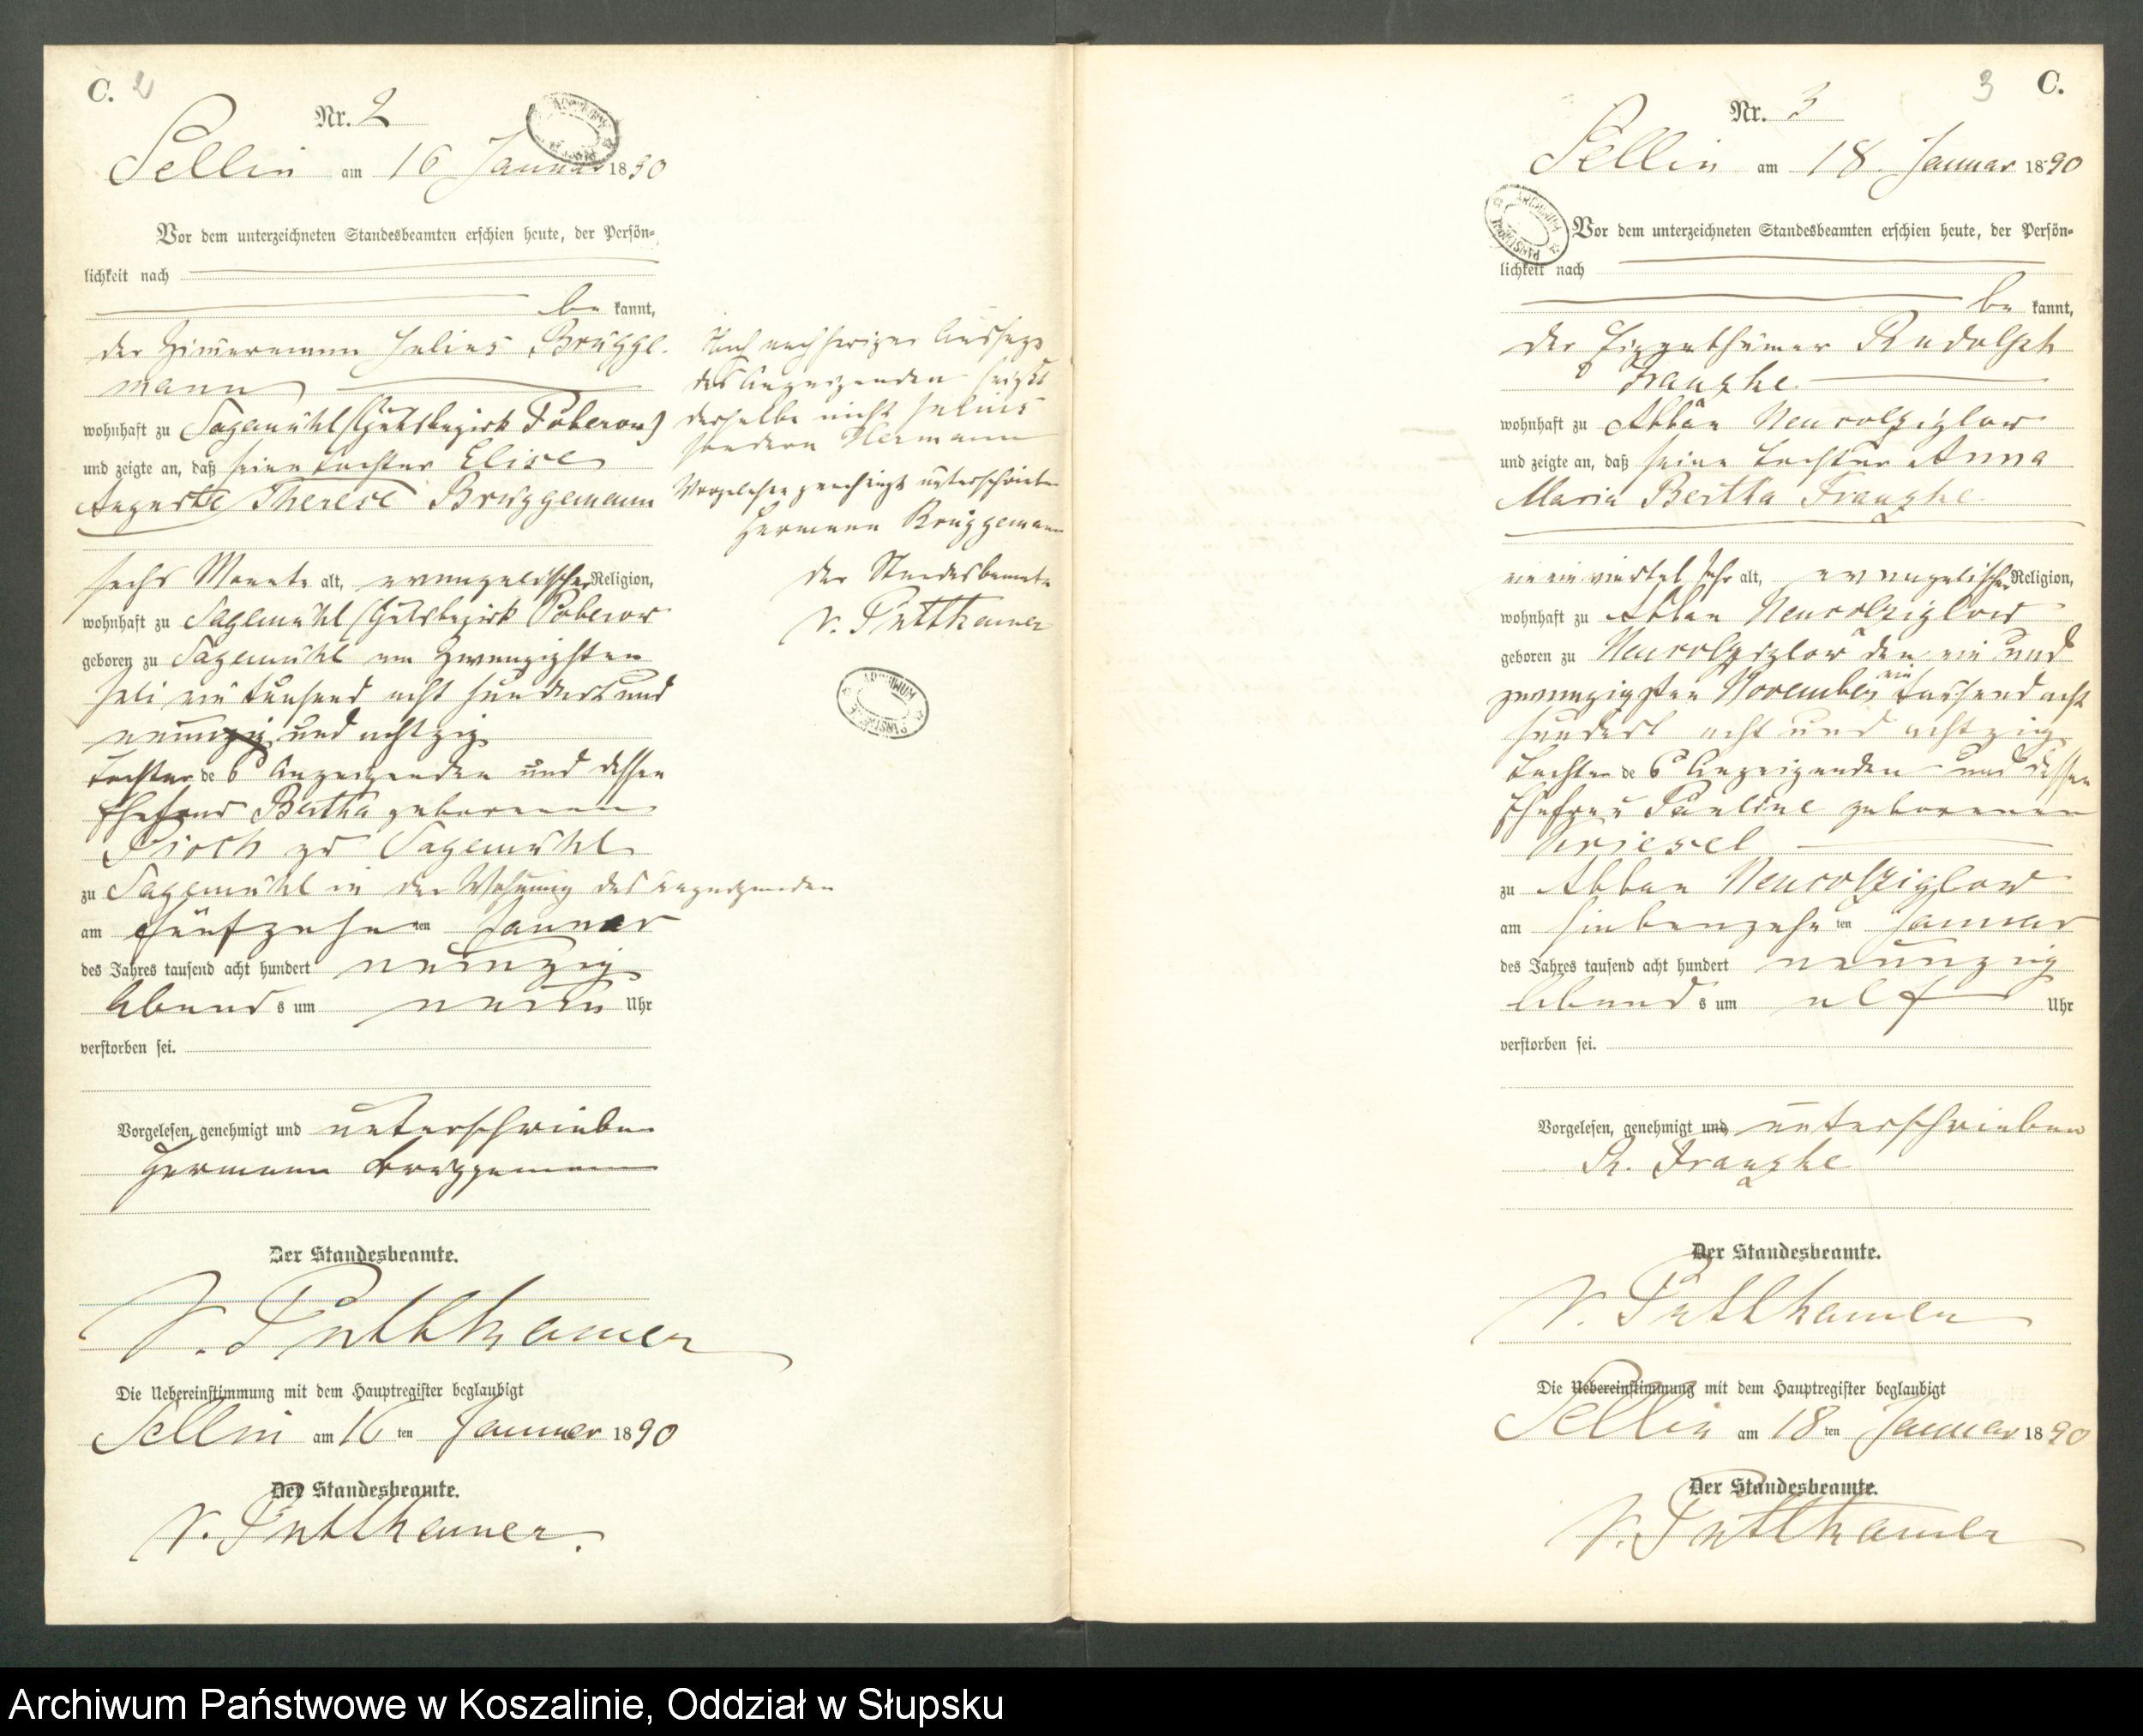 C. 2
Nr. 2
Sellin am 16 Januar 1890
Vor dem unterzeichneten Standesbeamten erschien heute, der Persön-
lichkeit nach
be kannt,
der Zimmermann Julius Brügge-
mann
wohnhaft zu Sagemühl (Gutsbezirk Poberow)
und zeigte an, daß seine Tochter Elise
Auguste Therese Brüggemann
sechs Monate alt, evangelischer Religion,
wohnhaft zu Sagemühl (Gutsbezirk Poberow
geboren zu Sagemühl am zwanzigsten
Juli ein tausend acht hundert und
neun und achtzig
Tochter des Anzeigenden und dessen
Ehefrau Bertha geborenen
Pioch zu Sagemühl
zu Sagemühl in der Wohnung des Anzeigenden
am fünfzehn ten Januar
des Jahres tausend acht hundert neunzig
Abend s um neun Uhr
verstorben sei.
Vorgelesen, genehmigt und unterschrieben
Hermann Brüggemann
Der Standesbeamte.
v. Puttkamer
Die Uebereinstimmung mit dem Hauptregister beglaubigt
Sellin am 16 ten Januar 1890
Der Standesbeamte.
v. Puttkamer.
Nach nachheriger Aussage
des Anzeigenden heißt
derselbe nicht Julius
sondern Hermann
Vorgelesen genehmigt unterschrieben
Hermann Brüggemann
Der Standesbeamte
v. Puttkamer
3 C.
Nr. 3
Sellin am 18. Januar 1890
Vor dem unterzeichneten Standesbeamten erschien heute, der Persön-
lichkeit nach
be kannt,
der Eigenthümer Rudolph
Franzke
wohnhaft zu Abbau Neukolziglow
und zeigte an, daß seine Tochter Anna
Maria Bertha Franzke
ein viertel Jahr alt, evangelischer Religion,
wohnhaft zu Abbau Neukolziglow
geboren zu Neukolziglow den ein und
zwanzigsten November ein tausend acht
hundert acht und achtzig
Tochter des Anzeigenden und dessen
Ehefrau Pauline geborenen
Kriesel
zu Abbau Neukolziglow
am siebenzehn ten Januar
des Jahres tausend acht hundert neunzig
Abend s um elf Uhr
verstorben sei.
Vorgelesen, genehmigt und unterschrieben
R. Franzke
Der Standesbeamte.
v. Puttkamer
Die Uebereinstimmung mit dem Hauptregister beglaubigt
Sellin am 18 ten Januar 1890
Der Standesbeamte.
v. Puttkamer
Archiwum Państwowe w Koszalinie, Oddział w Słupsku